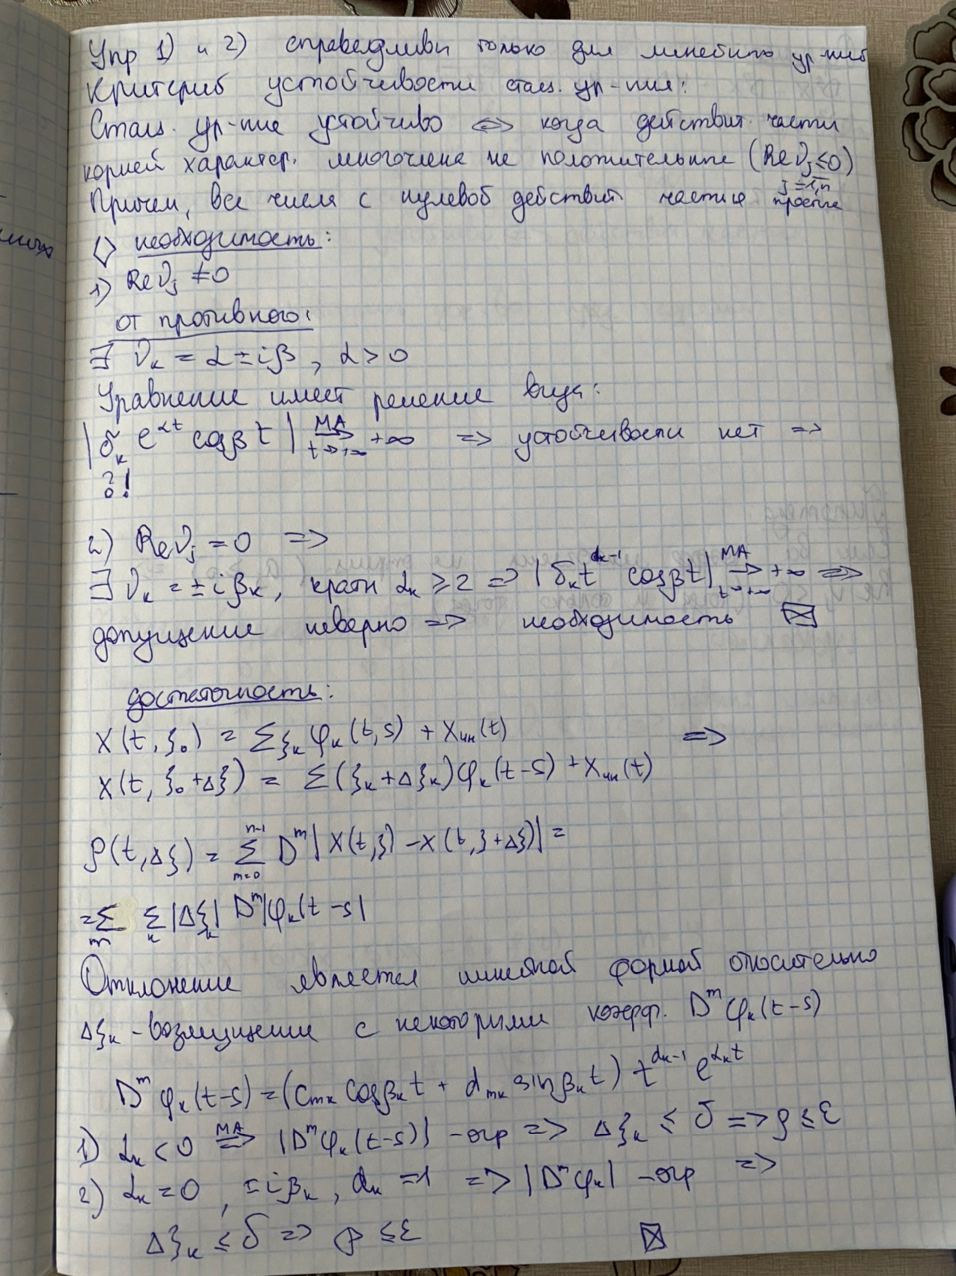 Упр 1) и 2) справедливы только для линейного ур-ния
Критерий устойчивости стац. ур-ния:
Стац. ур-ние устойчиво <=> когда действит. части
корней характер. многочлена не положительные (Re ν_j ≤ 0)
j = 1,n
Причем, все числа с нулевой действит частью простые
<> необходимость:
1) Re ν_j ≠ 0
от противного:
∃ ν_k = α ± iβ, α > 0
Уравнение имеет решение вида:
|δ_k e^{αt} cos β t| MA → t→+∞ +∞ => устойчивости нет =>
?!
2) Re ν_j = 0 =>
∃ ν_k = ± iβ_k, кратн α_k ≥ 2 => |δ_k t^{α_k-1} cos β t| MA → t→+∞ +∞ =>
допущение неверно => необходимость ⊠
достаточность:
X(t, ξ_0) = Σ ξ_k φ_k(t, s) + X_чн(t) =>
X(t, ξ_0 + Δξ) = Σ (ξ_k + Δξ_k) φ_k(t-s) + X_чн(t)
ρ(t, Δξ) = Σ_{m=0}^{n-1} D^m |X(t, ξ) - X(t, ξ + Δξ)| =
= Σ_m Σ_k |Δξ|_k D^m |φ_k(t-s)|
Отклонение является линейной формой относительно
Δξ_k - возмущение с некоторыми коэфф. D^m φ_k(t-s)
D^m φ_k(t-s) = (c_{mk} cos β_k t + d_{mk} sin β_k t) t^{α_k-1} e^{α_k t}
1) α_k < 0 MA => |D^m φ_k(t-s)| - огр => Δξ_k ≤ δ => ρ ≤ ε
2) α_k = 0, ± iβ_k, α_k = 1 => |D^m φ_k| - огр =>
Δξ_k ≤ δ => ρ ≤ ε ⊠